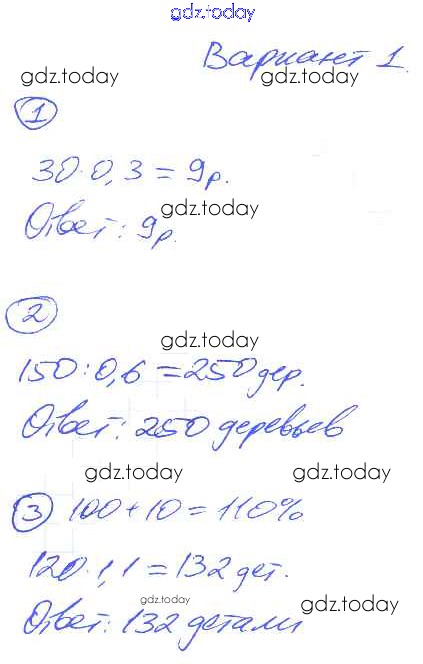 gdz.today
Вариант 1.
gdz.today gdz.today
1
30·0,3=9р.
gdz.today
Ответ: 9р.
2
gdz.today
150:0,6=250дер.
gdz.today
Ответ: 250 деревьев
gdz.today gdz.today
3 100+10=110%
120·1,1=132дет.
gdz.today gdz.today
Ответ: 132 детали